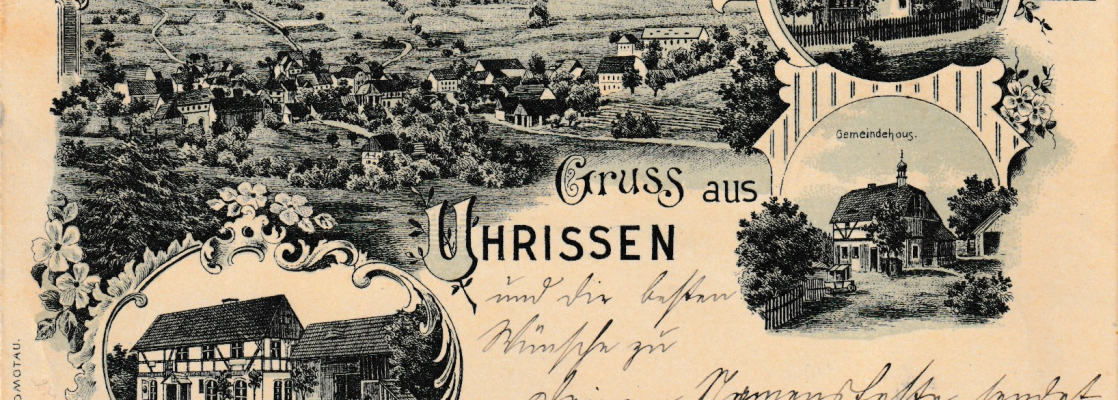 Gemeindehaus.
Gruss aus
UHRISSEN
und die besten
Wünsche zu
Namensfeste sendet
OMOTAU.